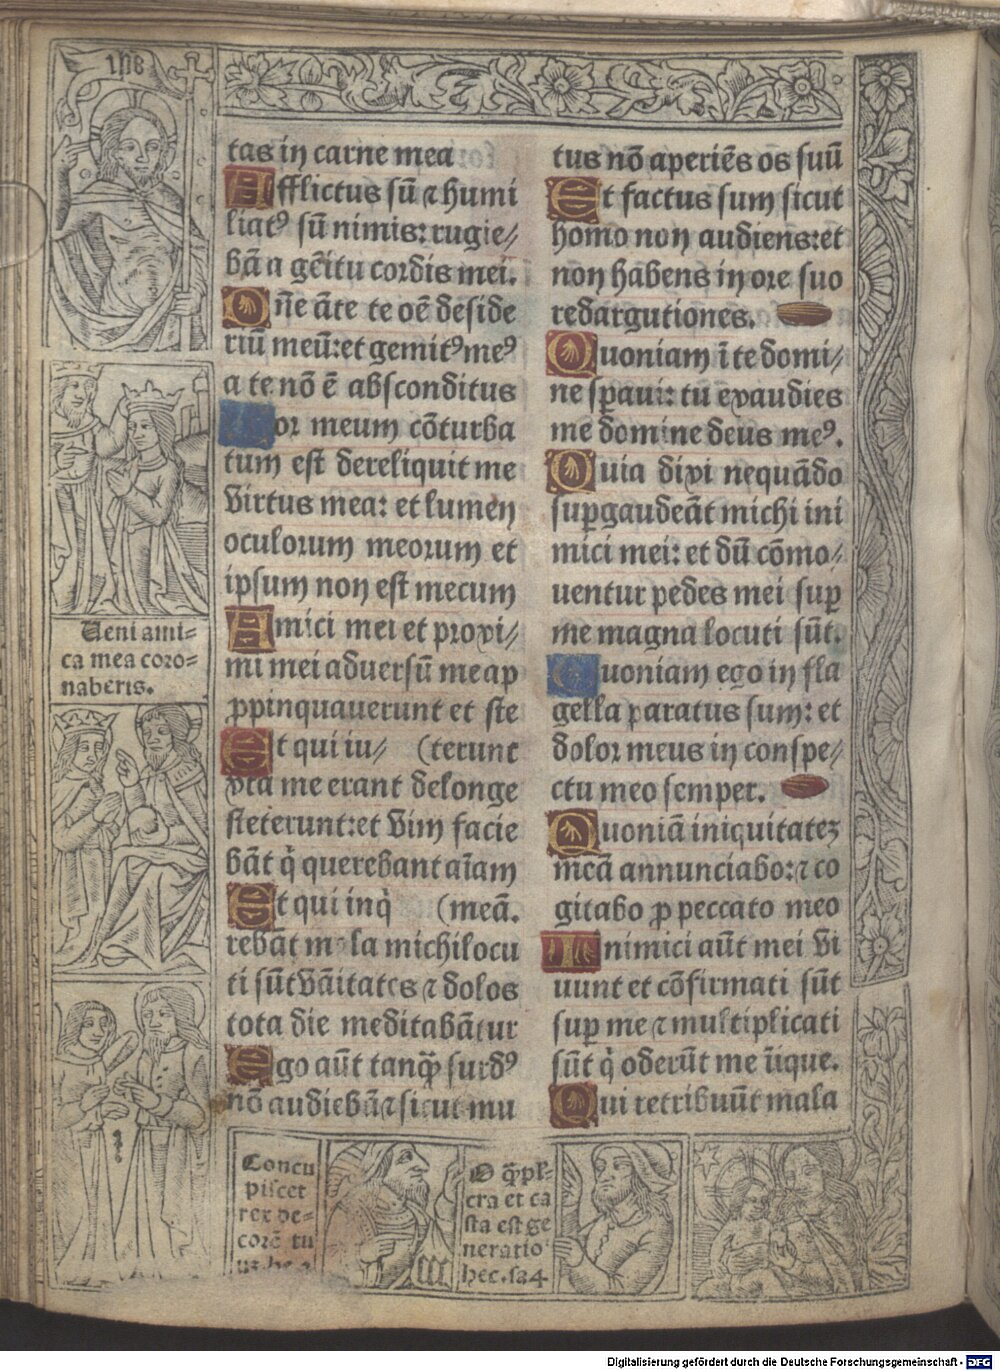 ihs
tas in carne mea
Afflictus sū ⁊ humi
liatꝰ sū nimis: rugie⸗
bā a gēitu cordis mei.
Dn̄e āte te oē deside
riū meū: et gemitꝰ meꝰ
a te nō ē absconditus
Cor meum cōturba
tum est dereliquit me
virtus mea: et lumen
oculorum meorum et
ipsum non est mecum
Amici mei et proxi⸗
mi mei adversū me ap
ꝓpinquauerunt et ste
Et qui iu⸗ (terunt
xta me erant de longe
steterunt: et vim facie
bāt q̇ querebant aīam
Et qui inq̇ (meā.
rebāt mala michi locu
ti sūt vāitates ⁊ dolos
tota die meditabātur
Ego aūt tanꝙ̄ surdꝰ
nō audiebā ⁊ sicut mu
tus nō aperiēs os suū
Et factus sum sicut
homo non audiens: et
non habens in ore suo
redargutiones.
Quoniam ī te domi⸗
ne sꝑaui: tu exaudies
me domine deus meꝰ.
Quia dixi nequādo
suꝑgaudeāt michi ini
mici mei: et dū cōmo⸗
uentur pedes mei suꝑ
me magna locuti sūt.
Quoniam ego in fla
gella paratus sum: et
dolor meus in conspe⸗
ctu meo semper.
Quoniā iniquitatez
meā annunciabo: ⁊ co
gitabo ꝓ peccato meo
Inimici aūt mei vi
uunt et cōfirmati sūt
suꝑ me ⁊ multiplicati
sūt q̇ oderūt me īique.
Qui retribuūt mala
Ueni ami=
ca mea coro=
naberis.
Concu
piscet
rex de=
corē tu
O q̄ pl=
cra et ca
sta est ge
neratio
hec. sa 4
Digitalisierung gefördert durch die Deutsche Forschungsgemeinschaft - DFG